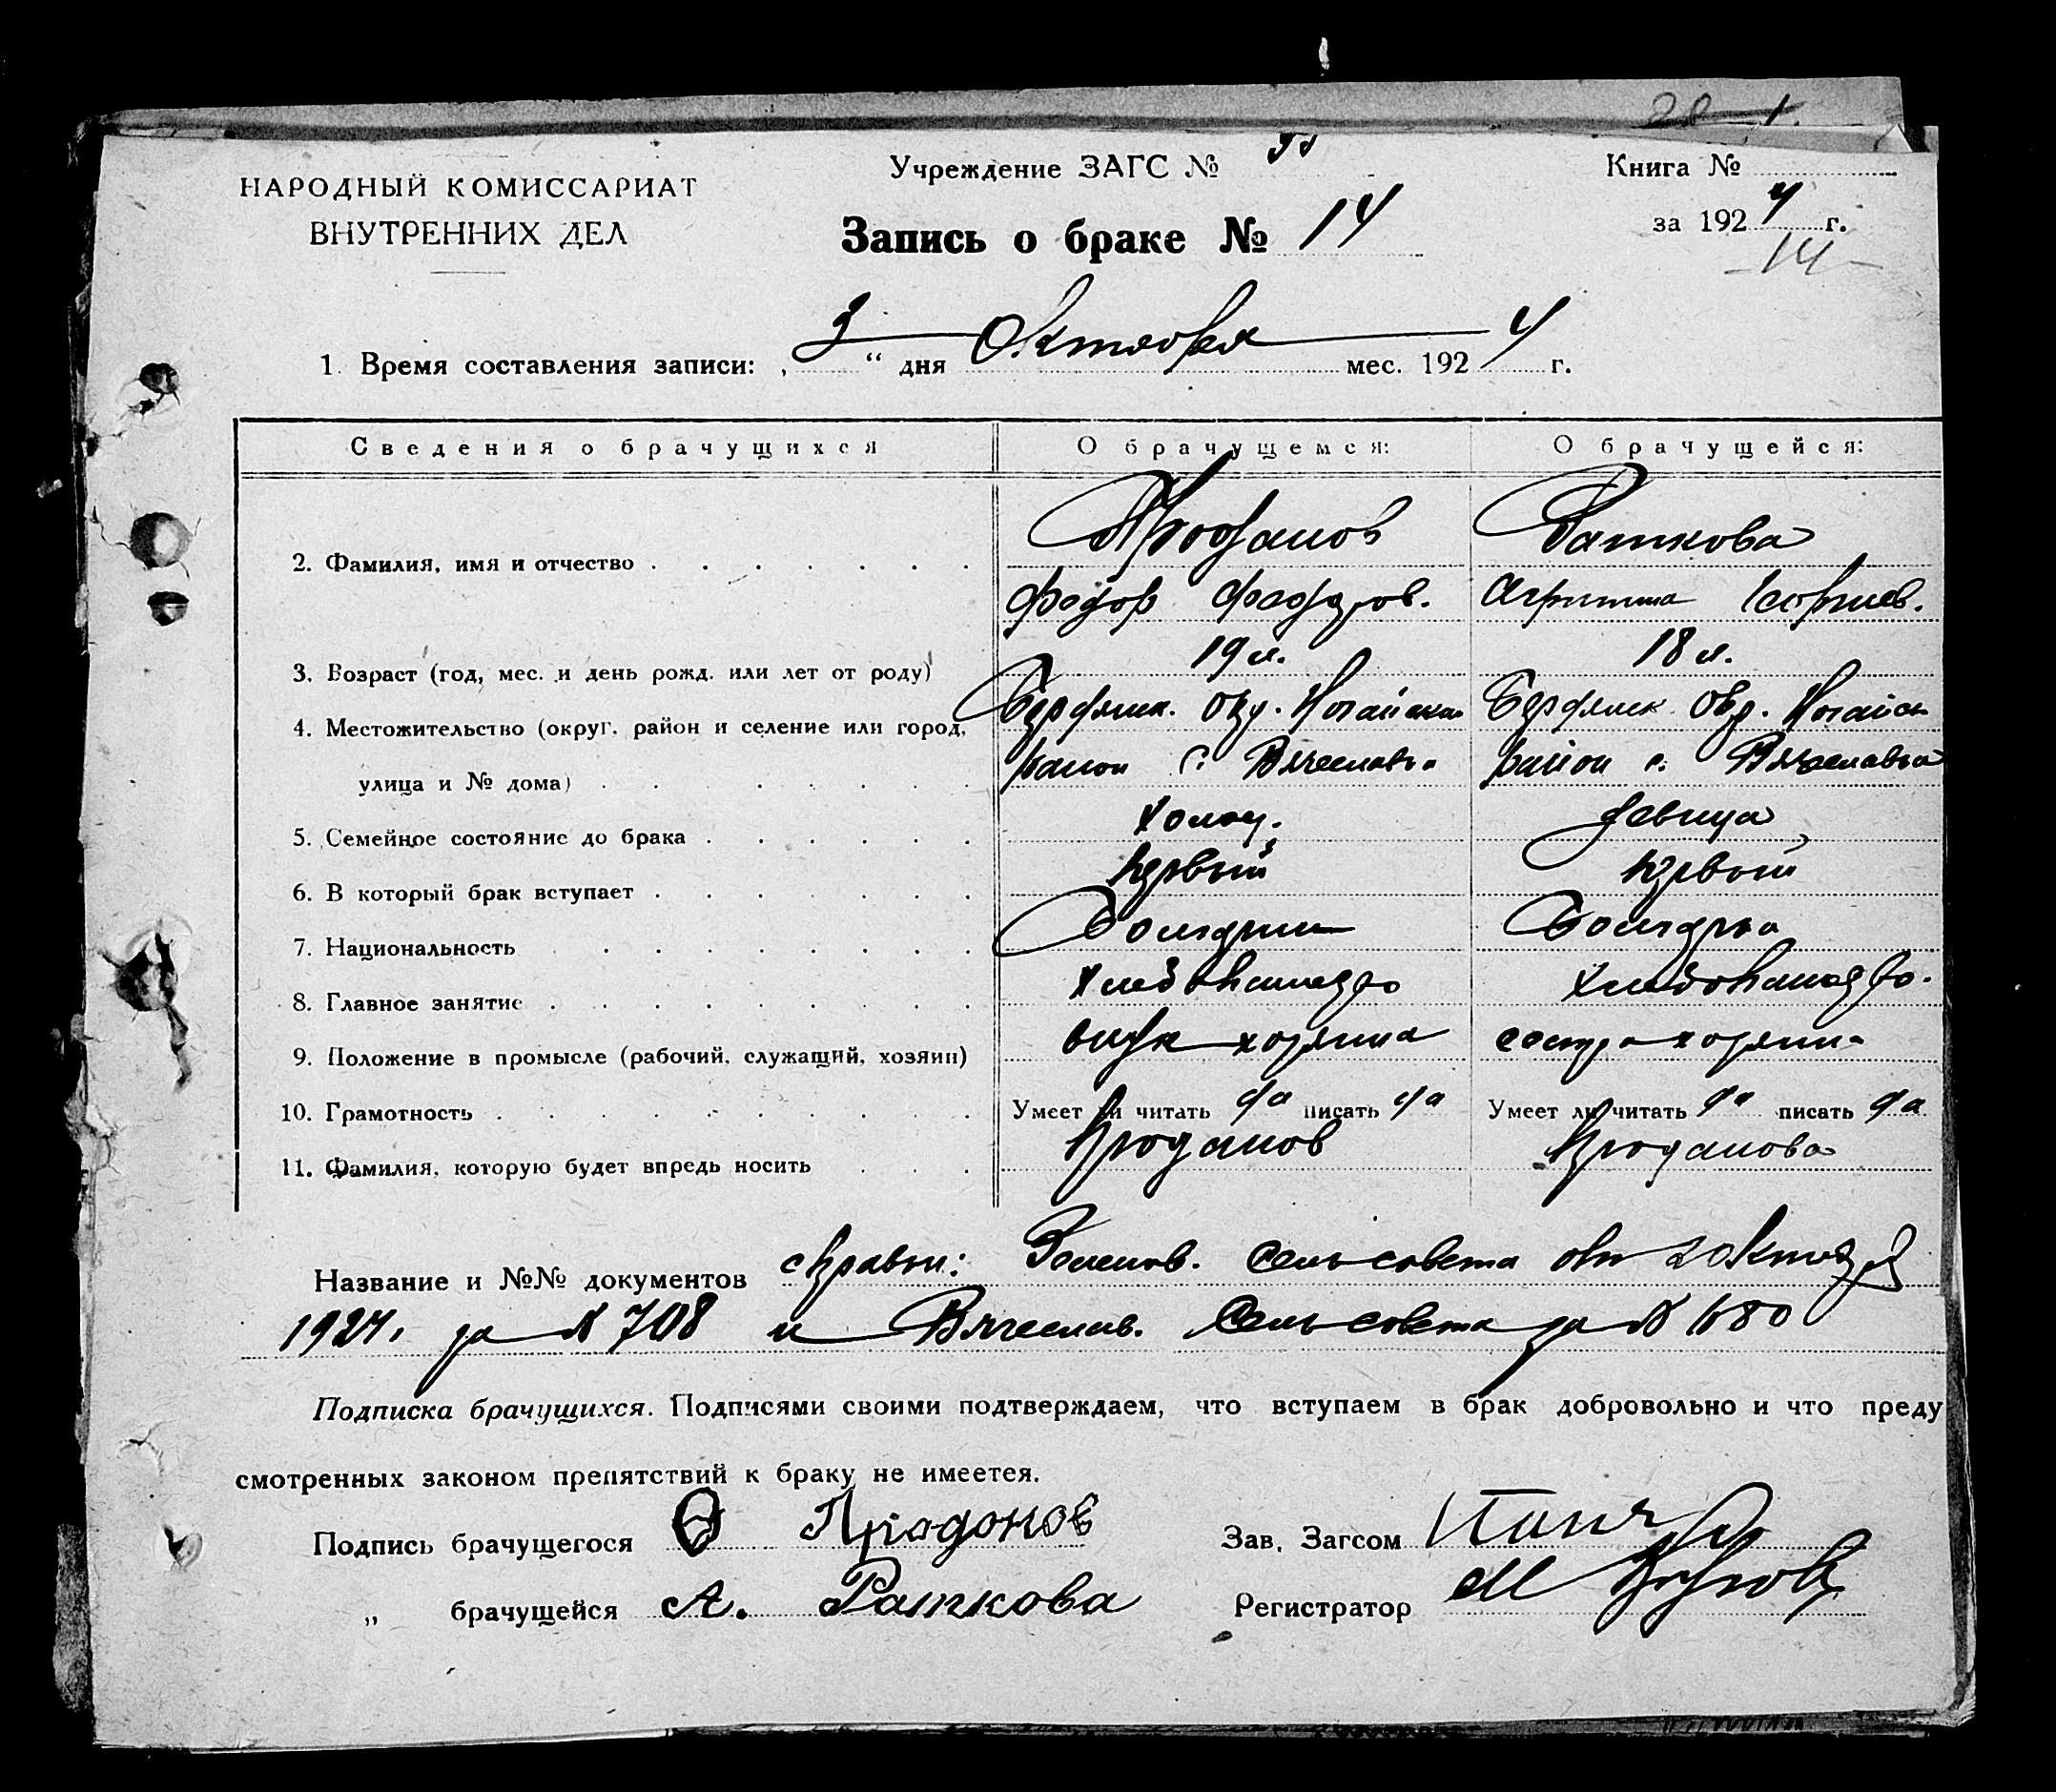 НАРОДНЫЙ КОМИССАРИАТ
ВНУТРЕННИХ ДЕЛ
Учреждение ЗАГС №
Книга №
Запись о браке № 14
за 1924 г.
-14-
1. Время составления записи: „ 3 “ дня Октября мес. 1924 г.
Сведения о брачущихся О брачущемся: О брачущейся:
2. Фамилия, имя и отчество Проданов Раткова
Федор Федоров. Агрипина Корнев.
3. Возраст (год, мес. и день рожд. или лет от роду) 19 л. 18 л.
4. Местожительство (округ, район и селение или город, Бердянск. Окр. Ногайска Бердянск Окр. Ногайск
улица и № дома) район с. Вячеславка район с. Вячеславка
5. Семейное состояние до брака холост. девица
6. В который брак вступает первый первый
7. Национальность Болгарин Болгарка
8. Главное занятие Хлебопашество Хлебопашество.
9. Положение в промысле (рабочий, служащий, хозяин) хозяина сестра хозяина
10. Грамотность Умеет ли читать да писать да Умеет ли читать да писать да
11. Фамилия, которую будет впредь носить Проданов Проданова
Название и №№ документов справки: сельсовета от 2 Октября
1924. за № 708 и Вячеслав. Сельсовета за № 680
Подписка брачущихся. Подписями своими подтверждаем, что вступаем в брак добровольно и что преду
смотренных законом препятствий к браку не имеется.
Подпись брачущегося Ф Проданов Зав. Загсом
„ брачущейся А. Раткова Регистратор М